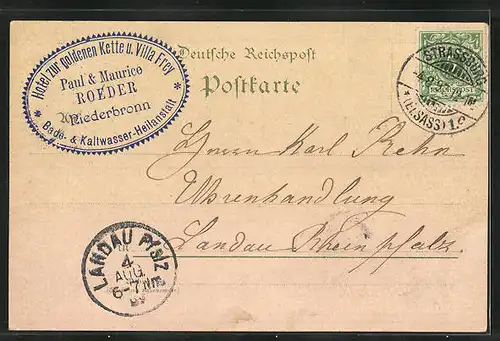 Hotel zur goldenen Kette u. Villa Frey
Paul & Maurice
ROEDER
Niederbronn
* Bade- & Kaltwasser-Heilanstalt *
Deutsche Reichspost
Postkarte
STRASSBURG
* (ELSASS) 1.
REICHSPOST
Herrn Karl Rehn
Uhrenhandlung
Landau Rheinpfalz.
LANDAU PFALZ
4
AUG.
6-7 NM